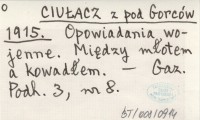 CIUŁACZ z pod Gorców
1915. Opowiadania wo-
jenne. Między młotem
a kowadłem. — Gaz.
Podh. 3, nr 8.